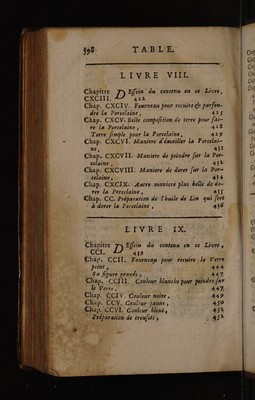 598 TABLE.
LIVRE VIII.
Chapitre DEssein du contenu en ce Livre,
CXCIII. 422
Chap. CXCIV. Fourneau pour recuire & parfon-
dre la Porcelaine, 425
Chap. CXCV. Belle composition de terre pour fai-
re la Porcelaine, 428
Terre simple pour la Porcelaine, 429
Chap. CXCVI. Maniere d'émailler la Porcelai-
ne, 431
Chap. CXCVII. Maniere de peindre sur la Por-
celaine, 432
Chap. CXCVIII. Maniere de dorer sur la Por-
celaine, 434
Chap. CXCIX. Autre maniere plus belle de do-
rer la Porcelaine, 435
Chap. CC. Préparation de l'huile de Lin qui sert
à dorer la Porcelaine, 436
LIVRE IX.
Chapitre DEssein du contenu en ce Livre,
CCI. 439
Chap. CCII. Fourneau pour recuire le Verre
peint, 444
Sa figure gravée, 447
Chap. CCIII. Couleur blanche pour peindre sur
le Verre, 447
Chap. CCIV. Couleur noire, 449
Chap. CCV. Couleur jaune, 450
Chap. CCVI. Couleur bleuë, 452
Préparation de creusets, 452